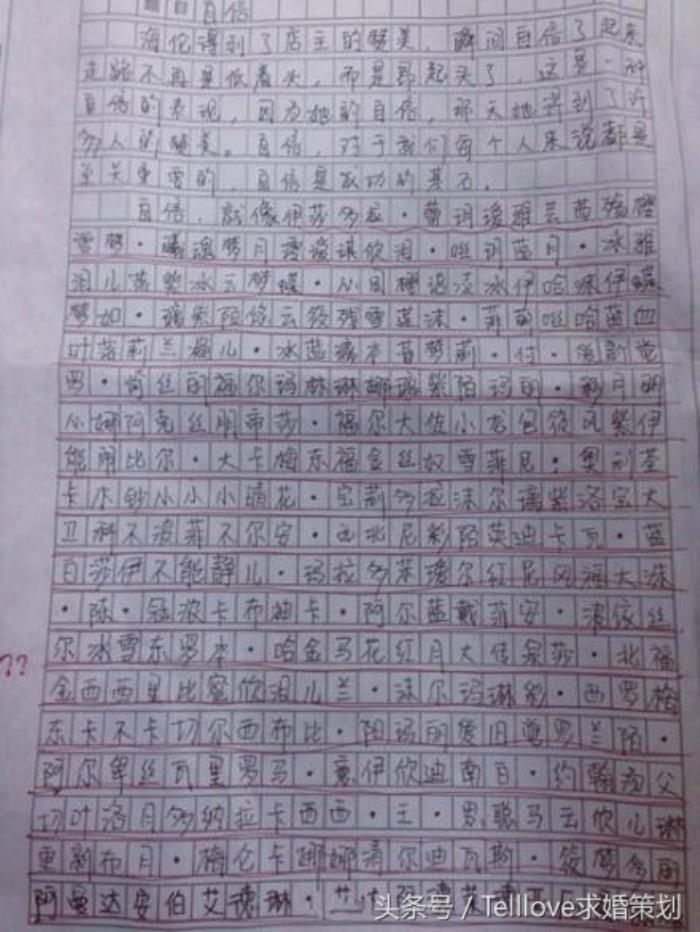 自信
海伦得到了店主的赞美,瞬间自信了起来
走路不再是低着头,而是昂起头了,这是一种
自信的表现,因为她的自信,那天她得到了许
多人的赞美。自信,对于我们每个人来说都是
至关重要的,自信是成功的基石。
自信,就像伊莎多拉·
雪梦·魂梦月 欣泪·丝玥蓝月·冰雅
泪儿 紫冰云梦蝶·心 橙语凌冰伊哈沫伊蝶
梦如·璃紫陌悠云筱残雪蓝沫·菲 丝哈蓝血
叶落莉兰 儿·冰蓝 本 梦莉·付·
罗·绮丝丽福尔玛林琳娜璃紫陌玛丽·彩月明
心娜阿克丝明帝莎·福尔大佐小龙包筱风紫伊
能丽比尔·大卡梅东福金丝奴雪菲尼·奥利荃
卡木钞小小小晴花·宝莉多拉沫尔璃紫洛宝大
卫科不波菲不尔安·西北尼彩陌英迪卡瓦·蓝
白莎伊不能静儿·玛拉多莱瑷尔红尼风福大沫
·陈·冠浓卡布油卡·阿尔蓝戴菲安·波依丝
尔冰雪东罗本·哈金马花红月大传奈莎·北福
金西西里比蜜欣泪儿兰·沫尔玛琳彩·西罗格
东卡不卡切尔西布比·阳玛丽 旧 罗兰陌·
阿尔卑丝瓦里罗马·意伊欣迪南日·约翰 父
切叶洛月多纳拉卡西西·王·男聪马云欣儿琳
更新布月·梅仑卡娜娜洛尔迪瓦斯·筱梦多丽
阿曼达安伯艾 琳·
??
头条号 / Telllove求婚策划